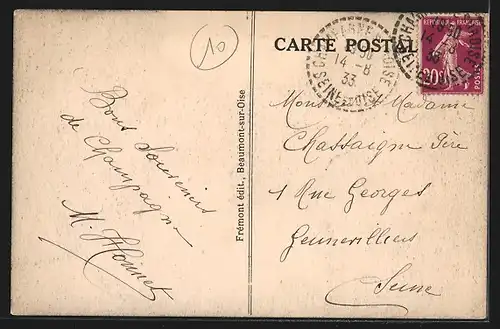 10
CARTE POSTALE
CHAMPAGNE
OISE
14 - 8
33
SEINE-ET-OISE
REPUBLIQUE FRANÇAISE
20c
POSTES
Bons Souvenirs
de Champagne
M.
Frémont édit., Beaumont-sur-Oise
Monsieur et Madame
Chassaigne Père
1 Rue Georges
Gennevilliers
Seine